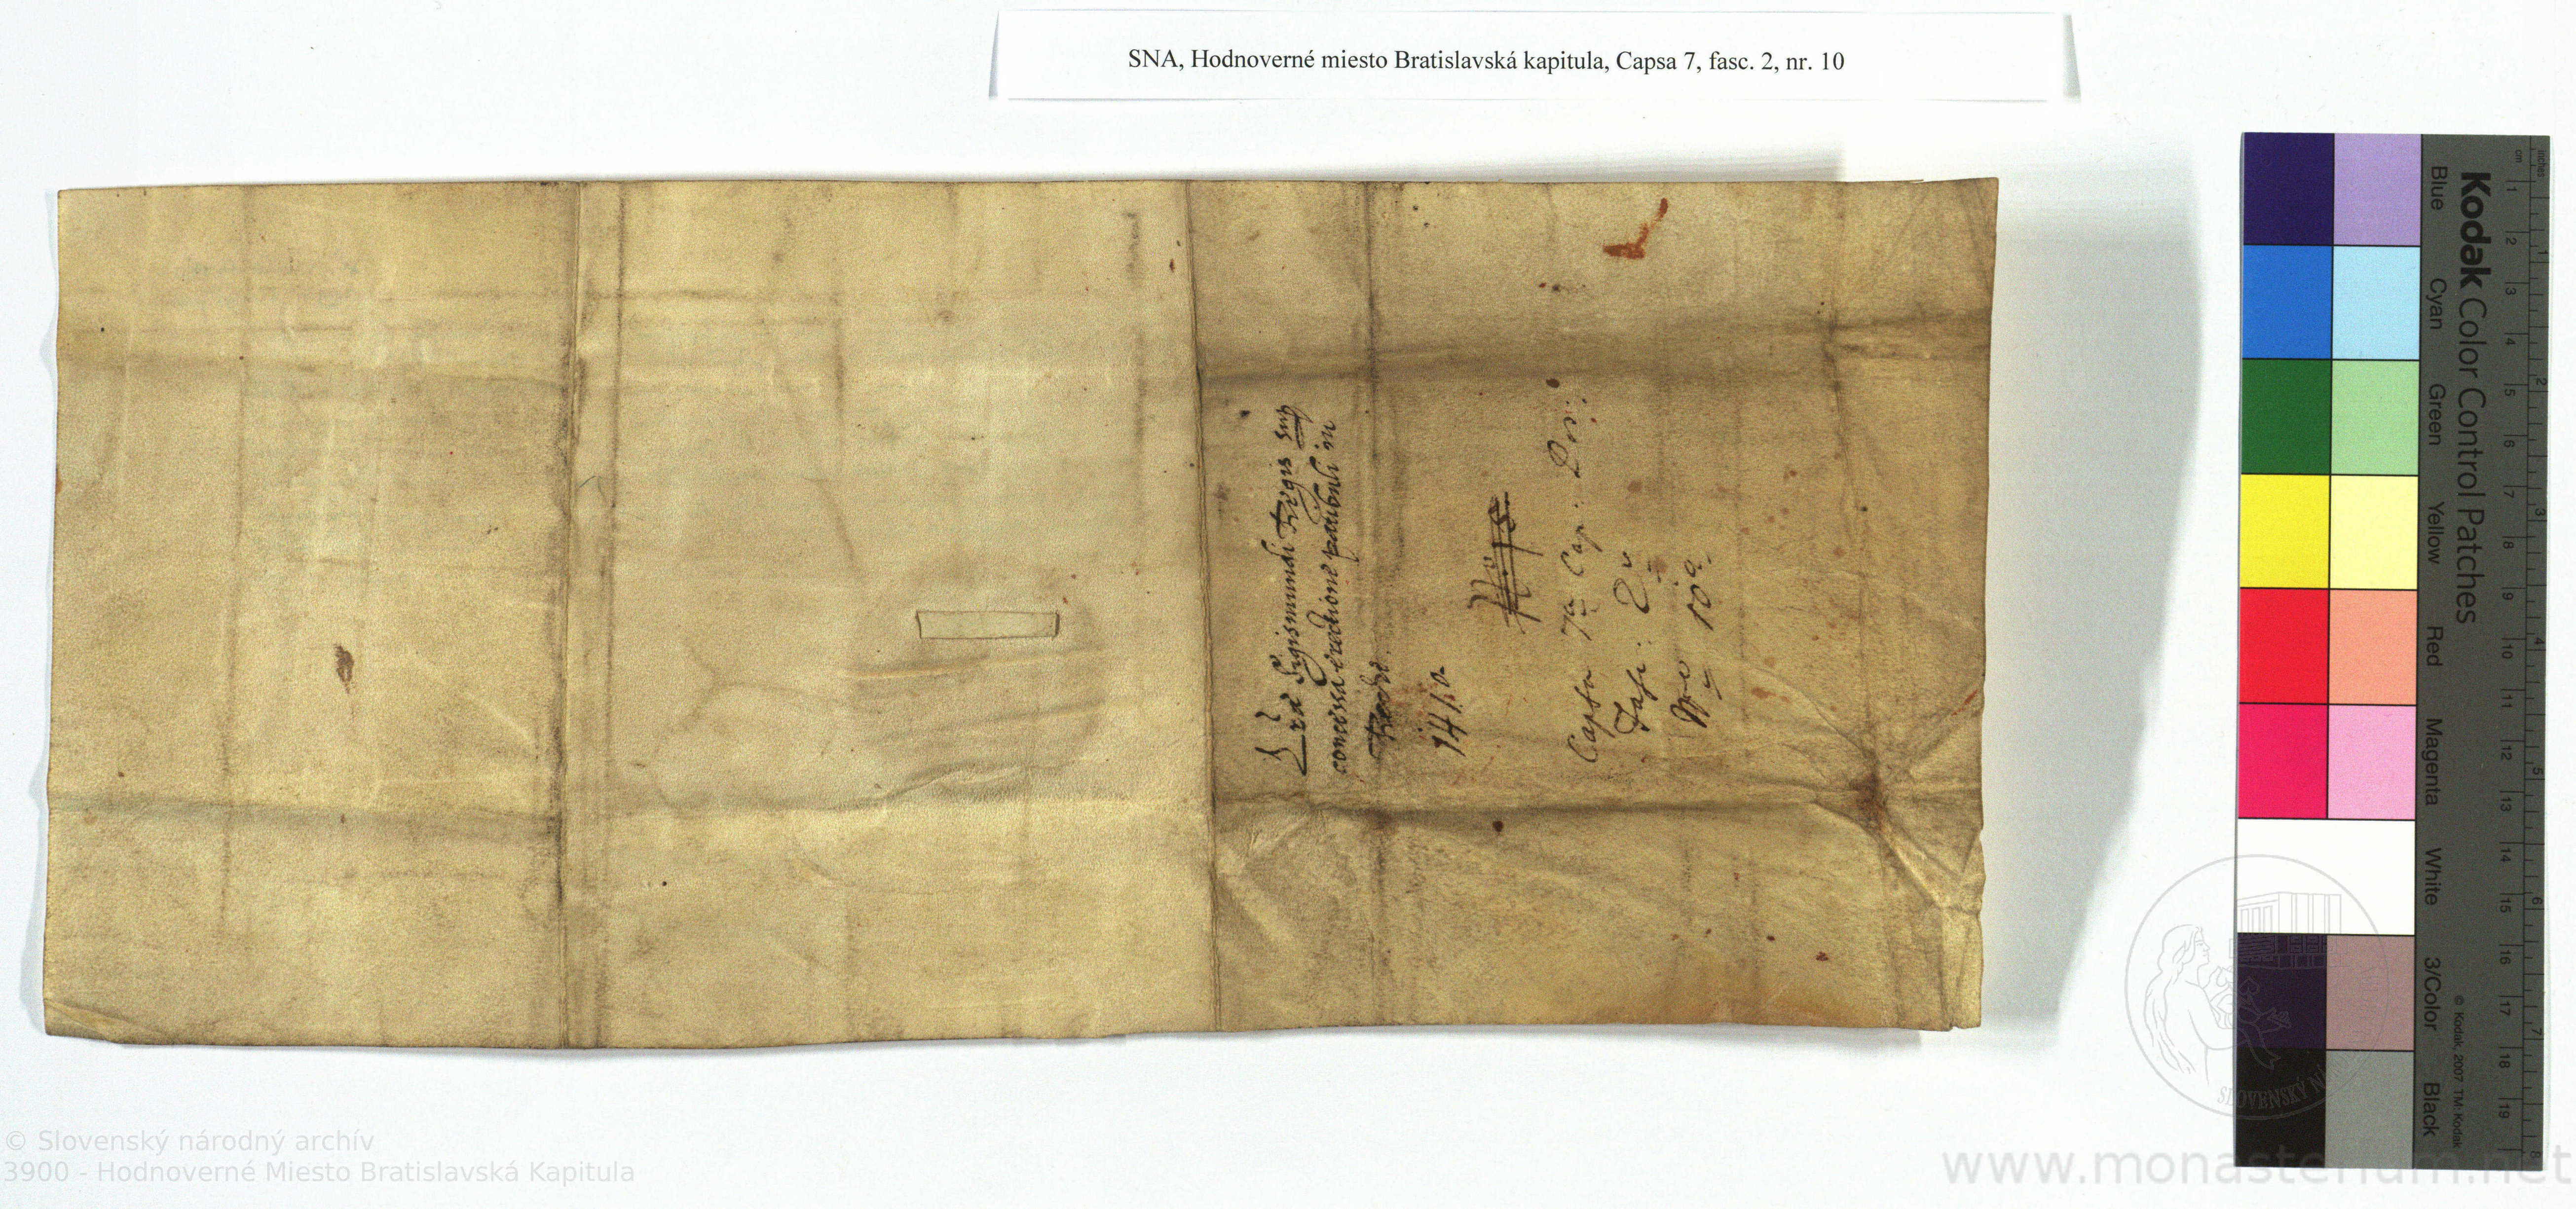 SNA, Hodnoverné miesto Bratislavská kapitula, Capsa 7, fasc. 2, nr. 10
Lrae Sigismundi Regis sup
concessa erectione patibuli in
Reche.
1410.
Capsa 7a Cap: Pos:
Fasc: 2o
Nro 10o
Kodak Color Control Patches
Blue Cyan Green Yellow Red Magenta White 3/Color Black
© Kodak, 2007 TM: Kodak
cm 1 2 3 4 5 6 7 8 9 10 11 12 13 14 15 16 17 18 19
inches 1 2 3 4 5 6 7 8
SLOVENSKÝ NÁ
© Slovenský národný archív
3900 - Hodnoverné Miesto Bratislavská Kapitula
www.monasterium.net